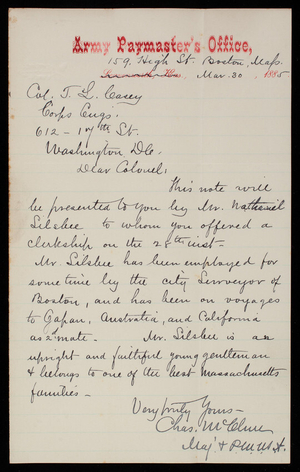 Army Paymaster's Office,
159 High St. Boston, Mass.
Mar. 30 1885
Col. T. L. Casey
Corps Engs.
612 - 17th St.
Washington D.C.
Dear Colonel:
This note will
be presented to you by Mr. Nathaniel
Silsbee to whom you offered a
clerkship on the 25th inst.
Mr. Silsbee has been employed for
sometime by the city Surveyor of
Boston, and has been on voyages
to Japan, Australia, and California
as 2d mate. Mr. Silsbee is an
upright and faithful young gentleman
& belongs to one of the best Massachusetts
families -
Very truly Yours -
Chas. McClure
Maj & P.M. U.S.A.